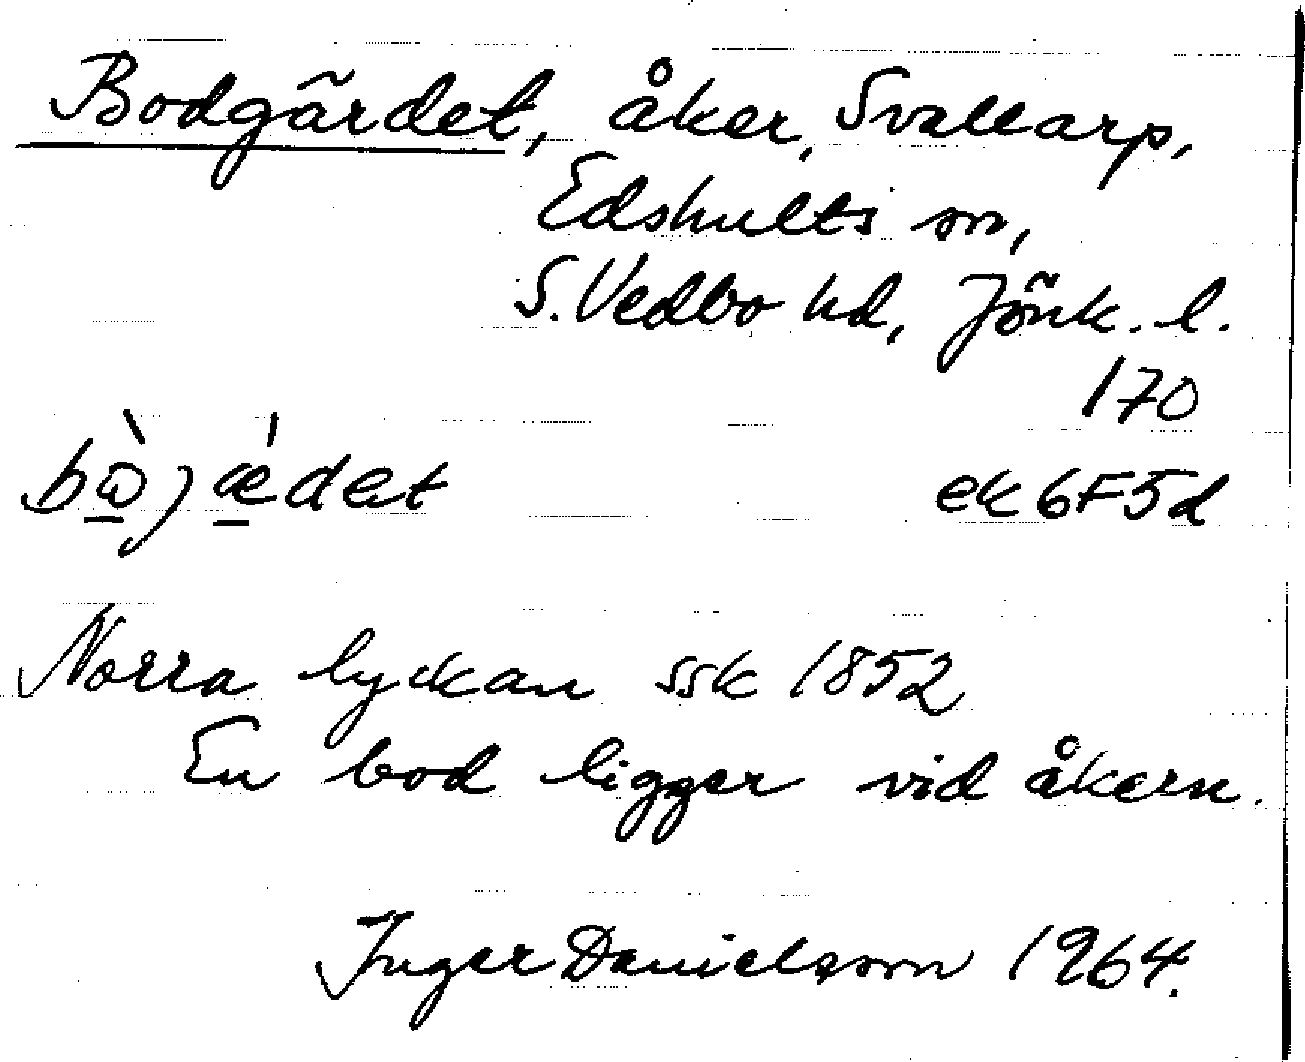 Bodgärdet, åker, Svallarp,
Edshults sn,
S. Vedbo hd, Jönk. l.
170
ek 6F5d
Norra lyckan ssk 1852
En bod ligger vid åkern.
Inger Danielsson 1964.